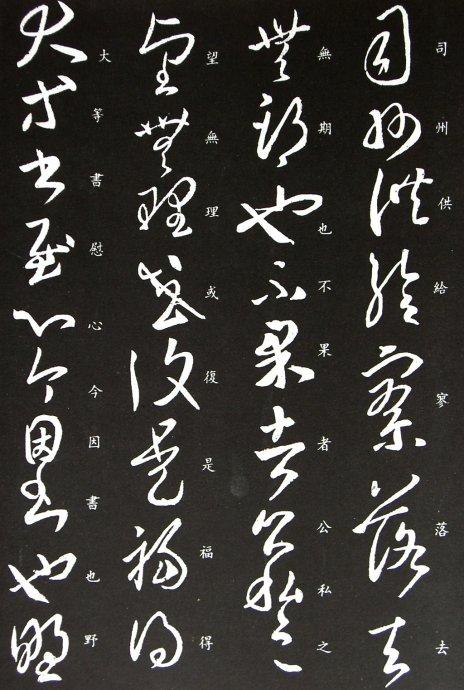 司州供給寥落去
無期也不果者公私之
望無理或復是福得
大等書慰心今因書也野